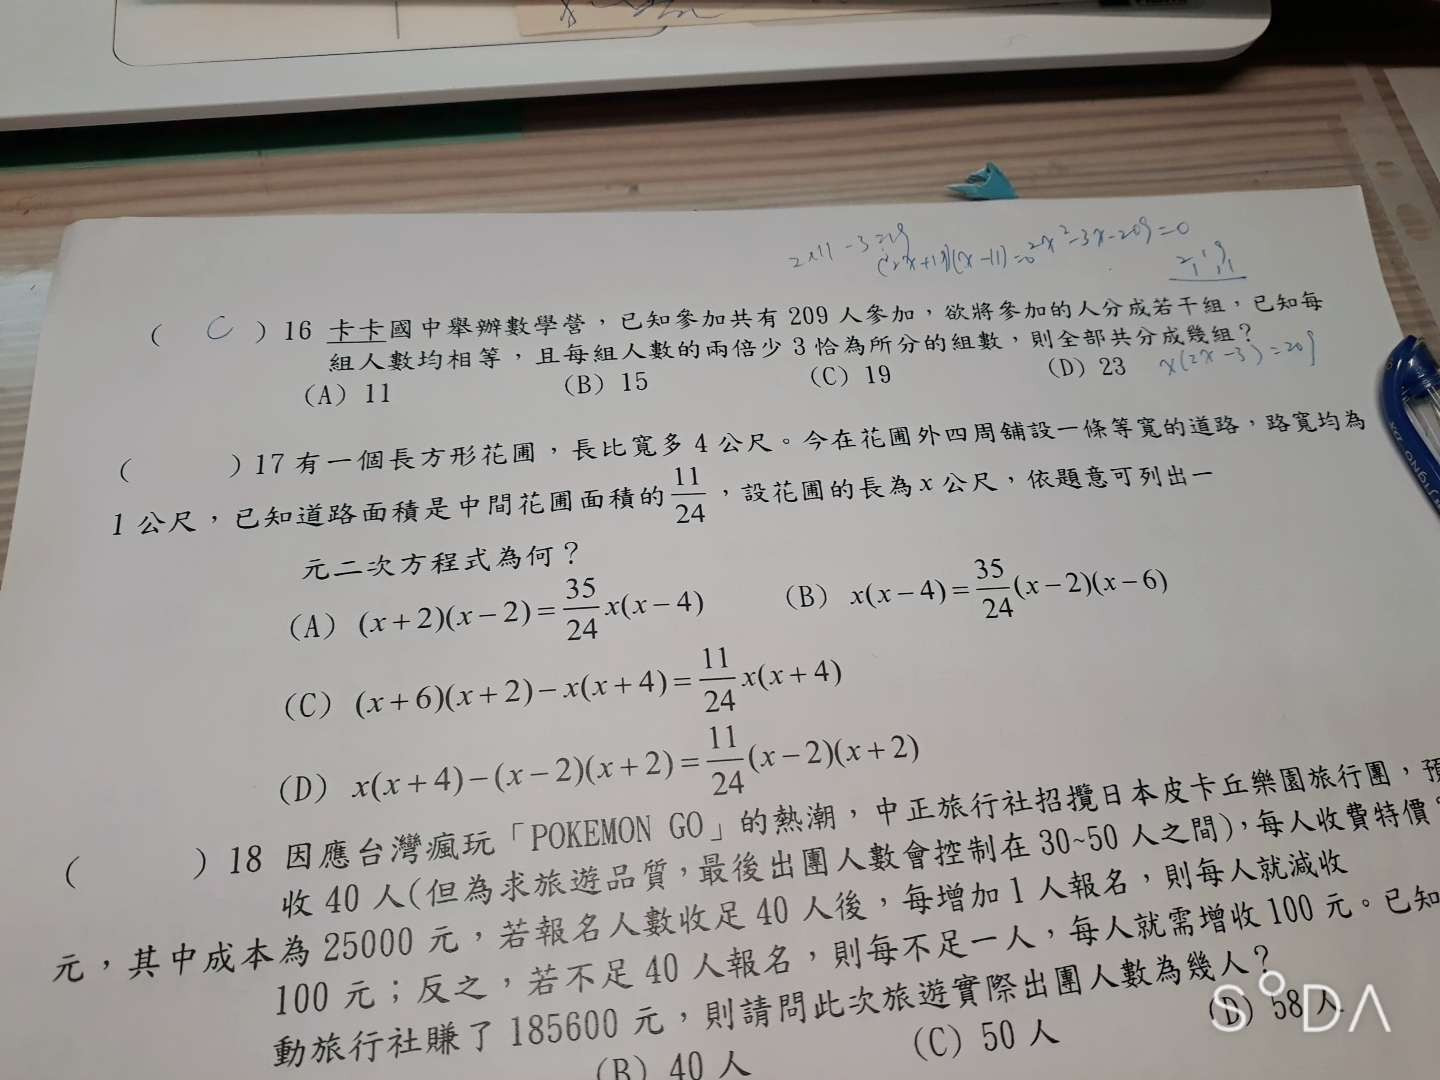 2x²-3x-209=0
(2x+19)(x-11)=0
( C ) 16 卡卡國中舉辦數學營，已知參加共有 209 人參加，欲將參加的人分成若干組，已知每
組人數均相等，且每組人數的兩倍少 3 恰為所分的組數，則全部共分成幾組？
(A) 11 (B) 15 (C) 19 (D) 23 x(2x-3)=209
( ) 17 有一個長方形花圃，長比寬多 4 公尺。今在花圃外四周舖設一條等寬的道路，路寬均為
1 公尺，已知道路面積是中間花圃面積的 11/24，設花圃的長為 x 公尺，依題意可列出一
元二次方程式為何？
(A) (x+2)(x-2)=35/24 x(x-4) (B) x(x-4)=35/24 (x-2)(x-6)
(C) (x+6)(x+2)-x(x+4)=11/24 x(x+4)
(D) x(x+4)-(x-2)(x+2)=11/24 (x-2)(x+2)
( ) 18 因應台灣瘋玩「POKEMON GO」的熱潮，中正旅行社招攬日本皮卡丘樂園旅行團，預
收 40 人(但為求旅遊品質，最後出團人數會控制在 30~50 人之間)，每人收費特價
元，其中成本為 25000 元，若報名人數收足 40 人後，每增加 1 人報名，則每人就減收
100 元；反之，若不足 40 人報名，則每不足一人，每人就需增收 100 元。已知
動旅行社賺了 185600 元，則請問此次旅遊實際出團人數為幾人？
(B) 40 人 (C) 50 人 (D) 58 人
SODA